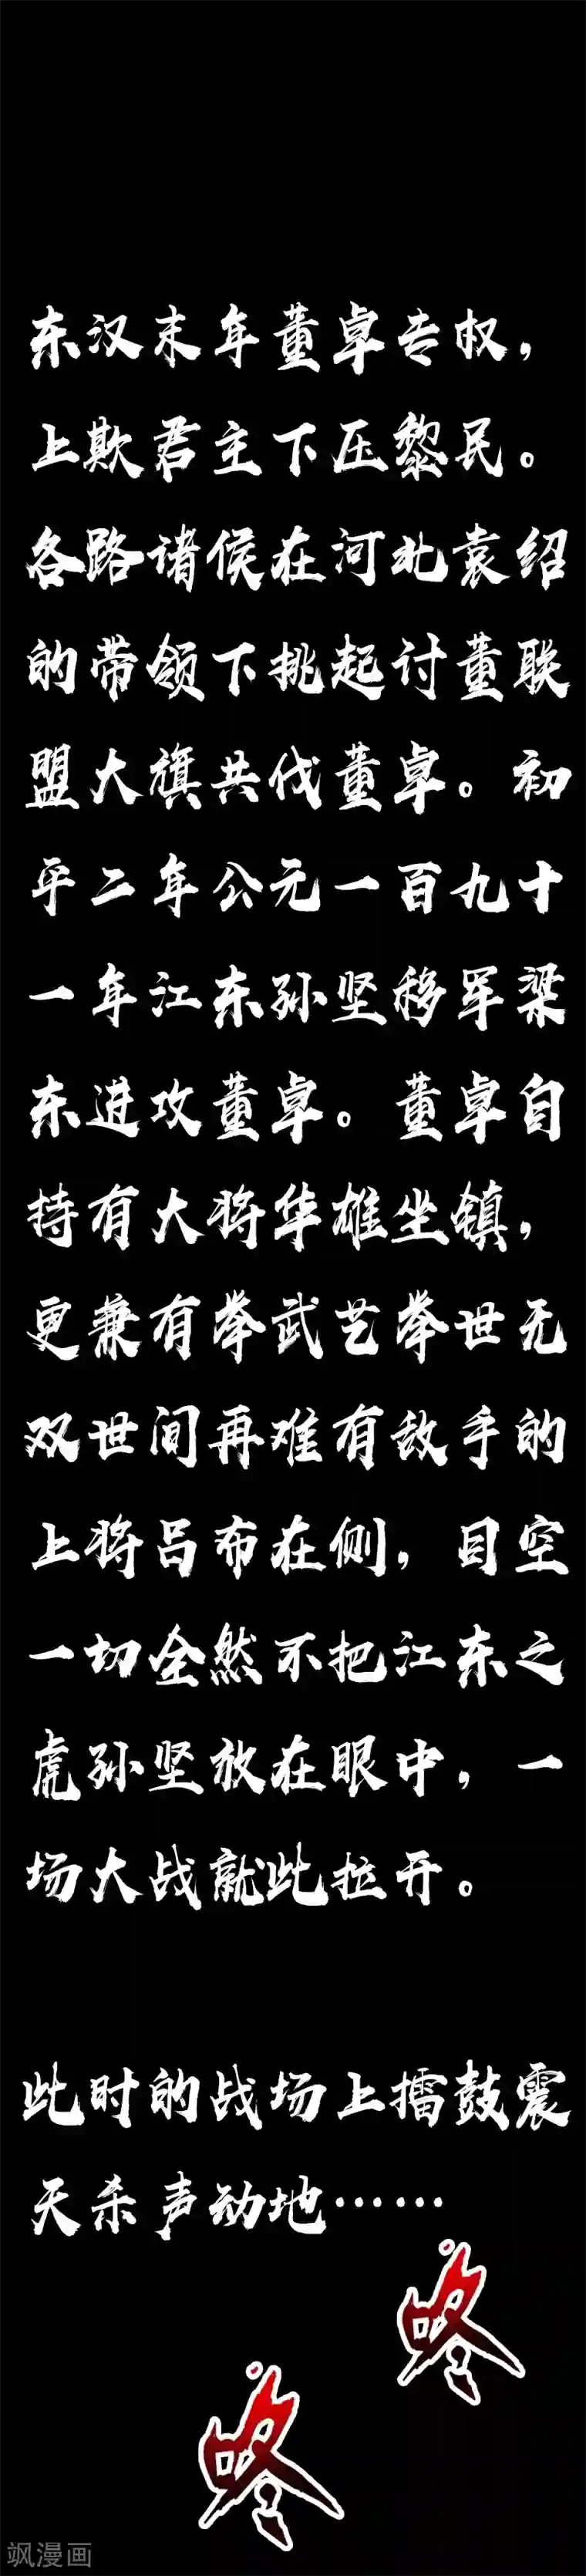 东汉末年董卓专权，
上欺君主下压黎民。
各路诸侯在河北袁绍
的带领下挑起讨董联
盟大旗共伐董卓。初
平二年公元一百九十
一年江东孙坚移军梁
东进攻董卓。董卓自
持有大将华雄坐镇，
更兼有拳武艺举世无
双世间再难有敌手的
上将吕布在侧，目空
一切全然不把江东之
虎孙坚放在眼中，一
场大战就此拉开。
此时的战场上擂鼓震
天杀声动地……
咚
咚
飒漫画